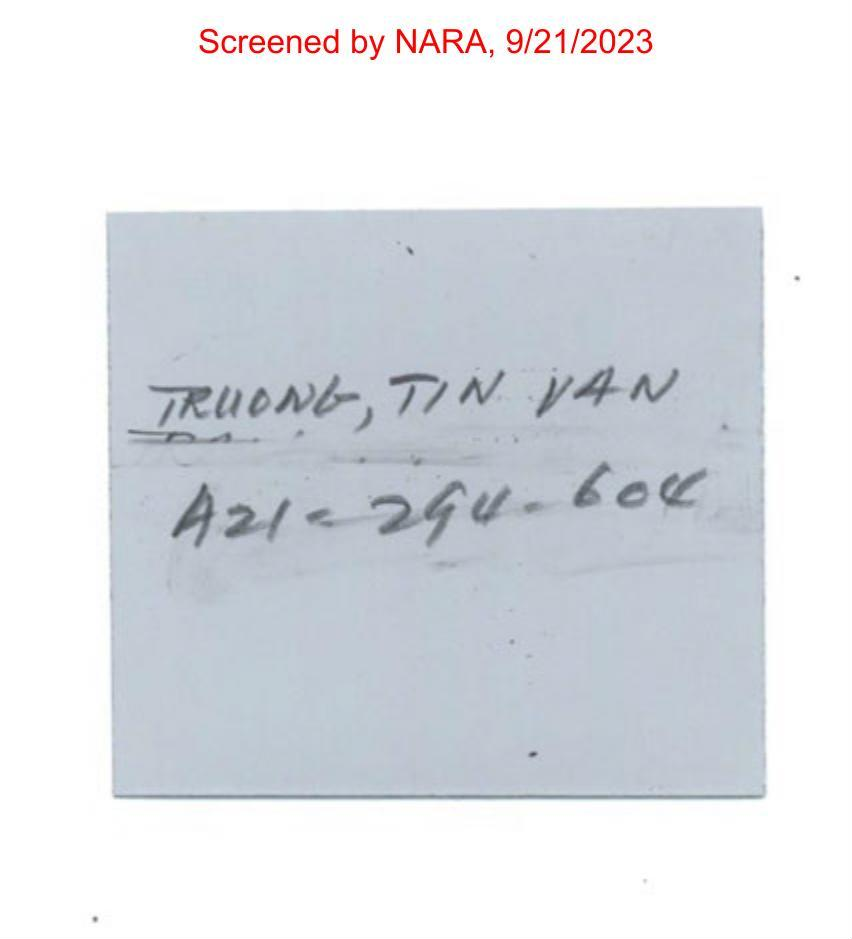 Screened by NARA, 9/21/2023
TRUONG, TIN VAN
A21-294-604